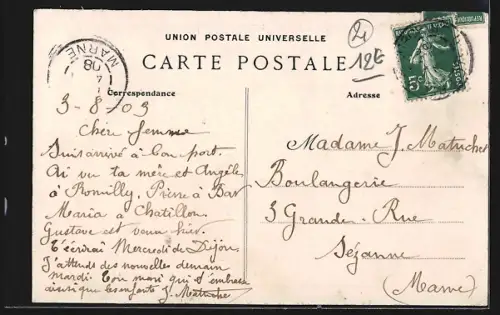 UNION POSTALE UNIVERSELLE
CARTE POSTALE
2
12E
Correspondance
Adresse
MARNE
08
5
3-8-03
Chère femme
Suis arrivé à bon port.
Ai vu ta mère et Angèle
à Romilly, Pierre à Bar
Maria à Chatillon.
Gustave est venu hier.
T'écrirai Mercredi de Dijon.
J'attends des nouvelles demain
mardi. Ton mari qui t'embrasse
ainsi que les enfants J. Matuchet
Madame J. Matuchet
Boulangerie
3 Grande-Rue
Sézanne
(Marne)